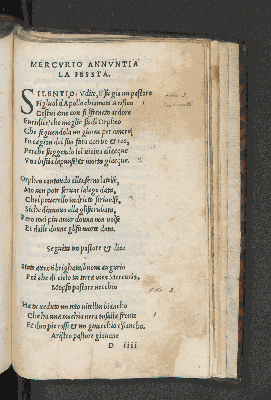 MERCVRIO ANNVNTIA
LA FESSTA.
SILENTIO; Vdite, E fie gia un pastore
Figliuol d'Apollo chiamato Aristeo
Costui amo con si sfrenato ardore
Euridice che moglie fu di Orpheo
Che seguendola un giorno per amore
Fu cagion del suo fato
Perche fuggendo lei uicina all acque
Vna biscia la punse; et morta giacque.
Orpheo cantando all'inferno la tolse,
Ma non pote seruar la legge data,
Che'l pouerello indrieto si uolse
Si che di nuouo ella gli fu rubata,
Pero mai piu amar donna non uolse
Et dalle donne gli fu morte data.
Seguita un pastore & dice
State attenti brigata; buono augurio
Poi che di cielo in terra vien Mercurio.
Mopso pastore uecchio
Ha ue ueduto un mio uitellin biancho
Che ha una macchia nera in su la fronte
Et duo pie rossi et un ginocchio e'l fiancho.
Aristeo pastore giouane
D iiii